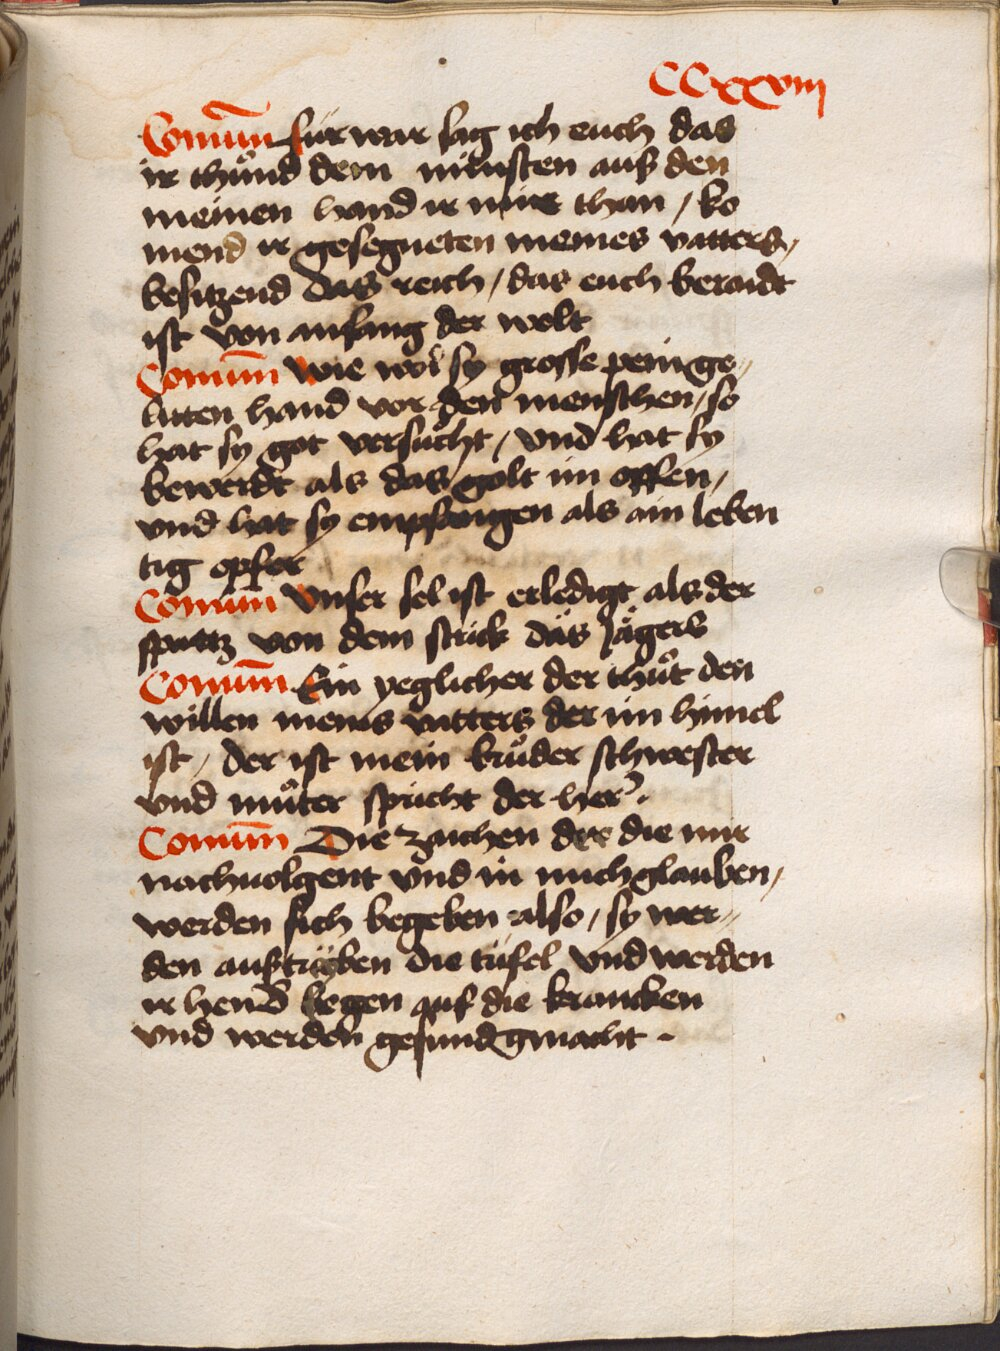 CCxxviii
Comūn für war sag ich euch das
ir thůnd dem minsten auß den
meinen hand ir mirs than / ko
mend ir gesegneten meines vatters /
besitzend das reich / das euch beraidt
ist von anfang der welt
Comūn wie wol sy grosse pein ge⸗
litten hand vor den menschen / so
hat sy got versůcht / vnd hat sy
bewerdt als das golt im offen /
vnd hat sy empfangen als ain leben
tig opfer
Comūn Vnser sel ist erledigt als der
spattz von dem strick däs Jägers
Comūn Ein yeglicher der thůt den
willen meins vatters der im himel
ist / der ist mein brůder schwester
vnd můter spricht der her⸗.
Comūn Die zaichen der die mir
nachuolgent vnd in mich glauben /
werden sich begeben also / sy wer⸗
den außtryben die tüfel vnd werden
ir hend legen auf die krancken
vnd werden gesund gmacht .